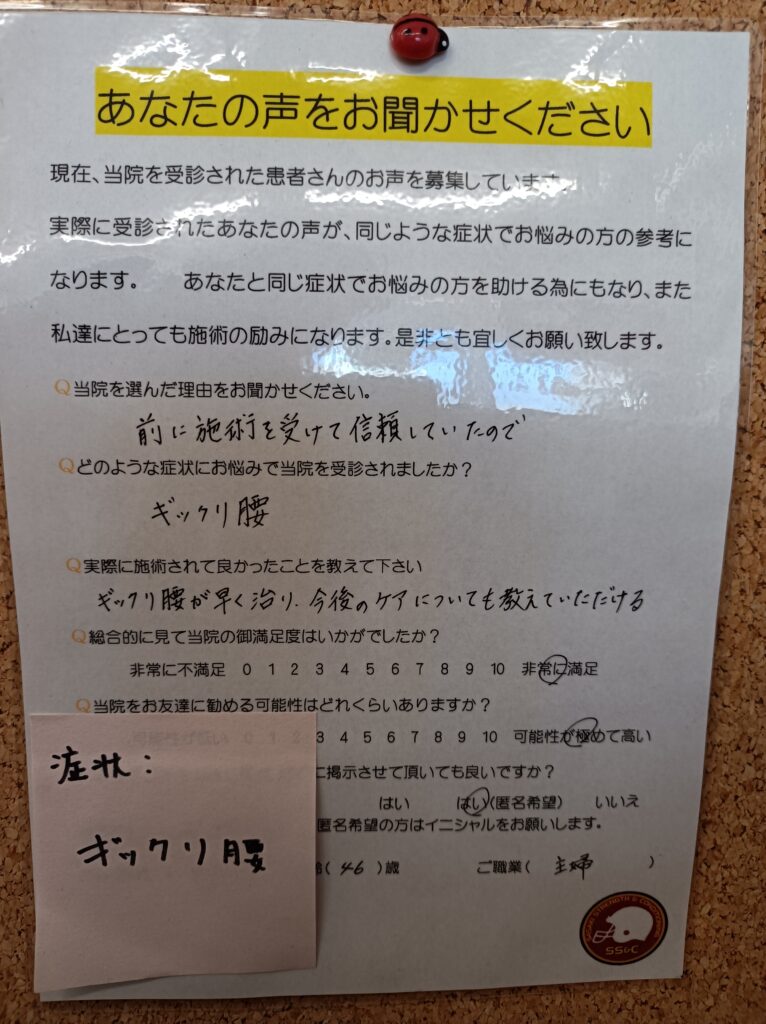 あなたの声をお聞かせください
現在、当院を受診された患者さんのお声を募集しています。
実際に受診されたあなたの声が、同じような症状でお悩みの方の参考に
なります。 あなたと同じ症状でお悩みの方を助ける為にもなり、また
私達にとっても施術の励みになります。是非とも宜しくお願い致します。
Q当院を選んだ理由をお聞かせください。
前に施術を受けて信頼していたので
Qどのような症状にお悩みで当院を受診されましたか？
ギックリ腰
Q実際に施術されて良かったことを教えて下さい
ギックリ腰が早く治り、今後のケアについても教えていただける
Q総合的に見て当院の御満足度はいかがでしたか？
非常に不満足 0 1 2 3 4 5 6 7 8 9 10 非常に満足
Q当院をお友達に勧める可能性はどれくらいありますか？
0 1 2 3 4 5 6 7 8 9 10 可能性が極めて高い
に掲示させて頂いても良いですか？
はい はい(匿名希望) いいえ
匿名希望の方はイニシャルをお願いします。
齢(46)歳 ご職業( 主婦 )
症状：
ギックリ腰
STRENGTH & CONDITIONING
SS&C